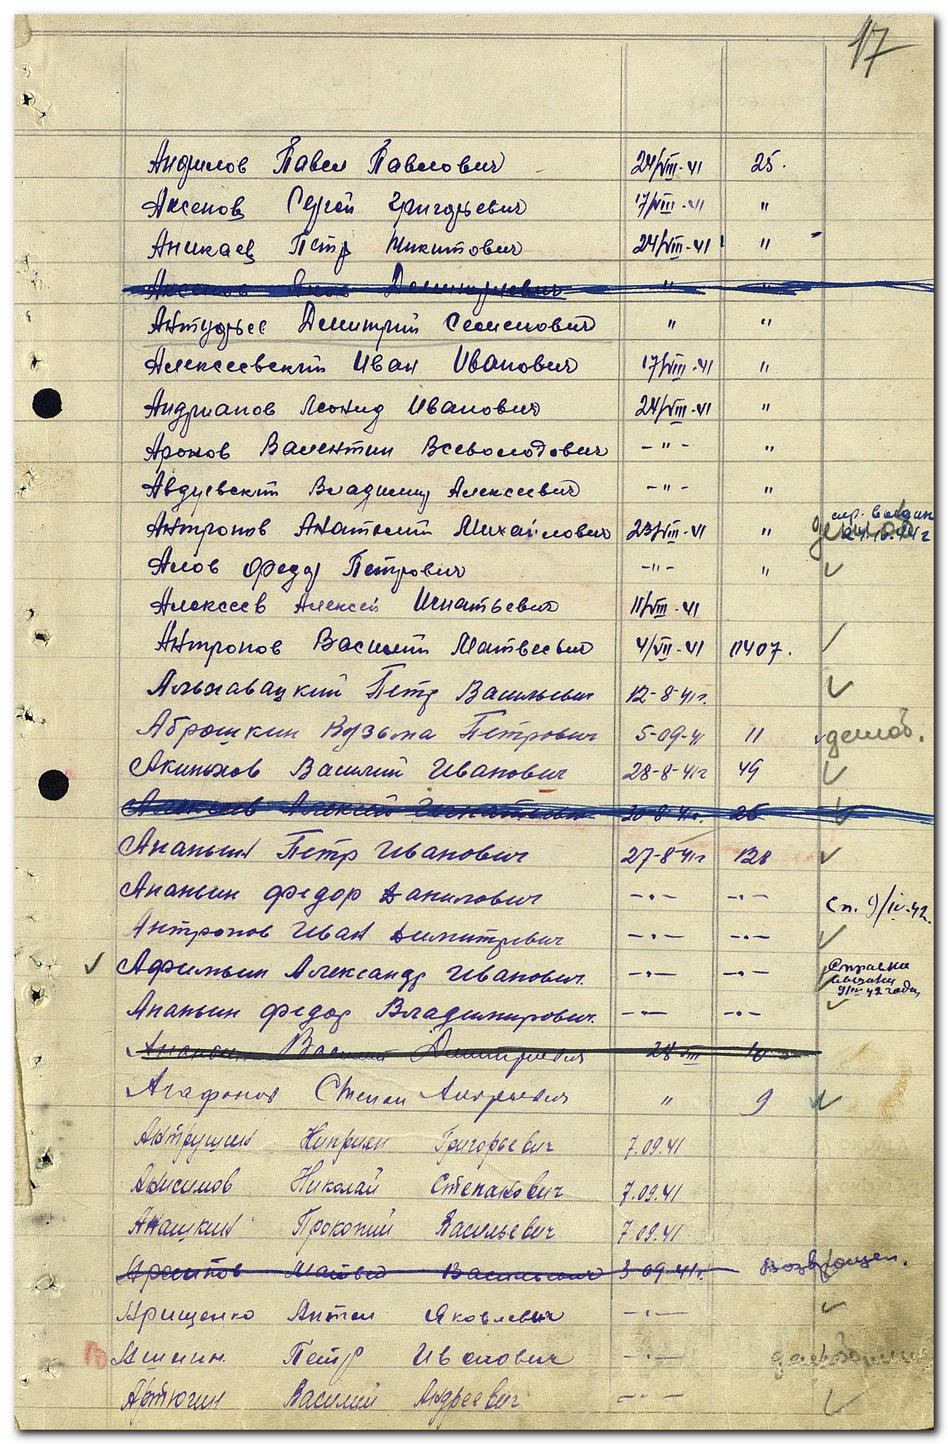 17
Андилов Павел Павлович 24/VIII-41 25.
Аксенов Сергей Григорьевич 17/VIII-41 "
Аникаев Петр Никитович 24/VIII-41 "
Аксенов Яков Димитриевич " "
Димитрий Семенович " "
Алексеевский Иван Иванович 17/VIII-41 "
Андрианов Леонид Иванович 24/VIII-41 "
Аронов Валентин Всеволодович - " - "
Авдуевский Владимир Алексеевич - " - "
Антропов Анатолий Михайлович 23/VIII-41 "
Анов Федор Петрович - " - "
Алексеев Алексей Игнатьевич 11/VIII-41
Антропов Василий Матвеевич 4/VII-41 11407.
Петр Васильевич 12-8-41г.
Аброшкин Кузьма Петрович 5-09-41 11 демоб.
Акиньхов Василий Иванович 28-8-41г 49
Алексеев Алексей Игнатьевич 30-8-41г. 26
Ананьин Петр Иванович 27-8-41г 128
Ананьин Федор Данилович -·- -·-
Сп. 9/IV-42.
Антропов Иван Димитревич -·- -·-
Афимьин Александр Иванович. -·- -·- Справка 42 года
Ананьин Федор Владимирович. -·- -·-
Ананьин Василий Димитриевич 28 VIII 10
Агафонов Степан Андреевич " 9
Антрушин Киприян Григорьевич 7.09.41
Анисимов Николай Степанович 7.09.41
Анашкин Прокопий Васильевич 7.09.41
Матвей Васильевич 3-09-41г. Возвращен.
Арищенко Антон Яковлевич -·-
Ашнин. Петр Иванович -·-
Артюгин Василий Андреевич -·-